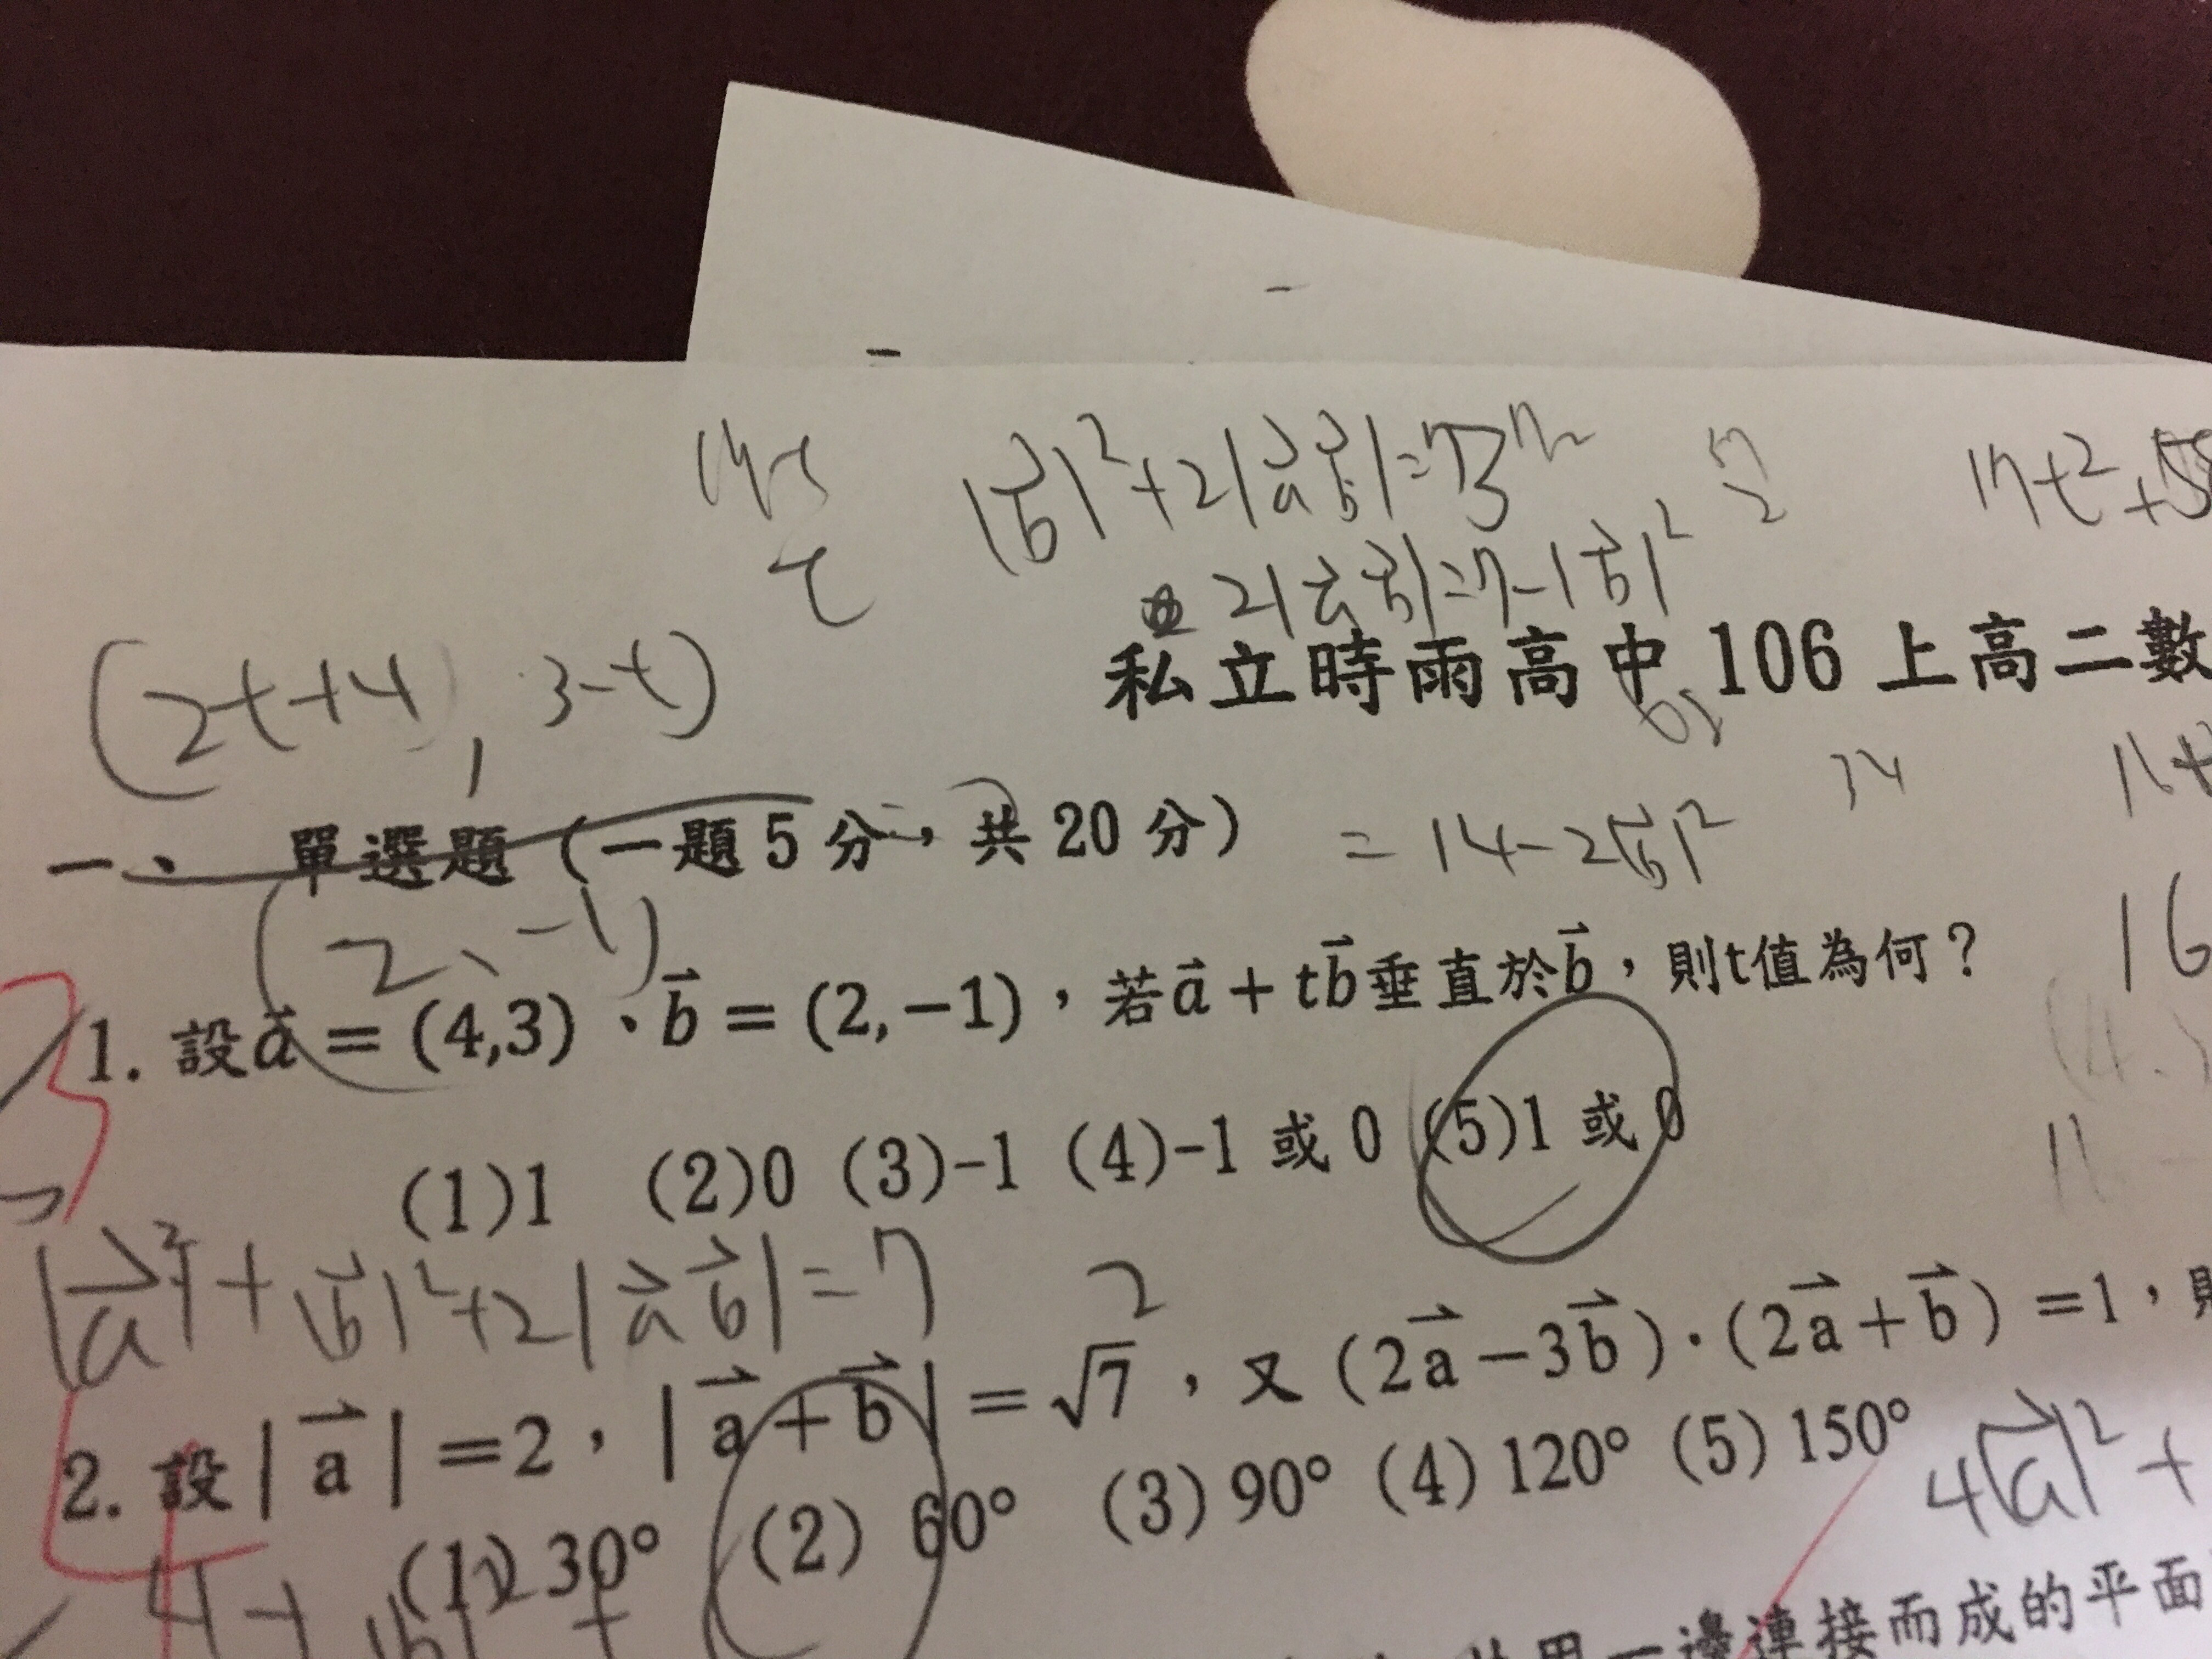 |b⃗|²+2|a⃗b⃗|=7
17t²+5
2|a⃗b⃗|=7-|b⃗|²
私立時雨高中 106 上高二數
(2t+4, 3-t)
=14-2|b⃗|²
一、 單選題（一題 5 分，共 20 分）
(2、-1)
16
1. 設a⃗ = (4,3)、b⃗ = (2,−1)，若a⃗ + tb⃗垂直於b⃗，則t值為何？
(1)1 (2)0 (3)-1 (4)-1 或 0 (5)1 或 0
|a⃗|²+|b⃗|²+2|a⃗b⃗|=7
2
2. 設| a⃗ |=2，| a⃗+b⃗ |=√7，又（2a⃗−3b⃗）·（2a⃗+b⃗）=1，則
(1) 30° (2) 60° (3) 90° (4) 120° (5) 150°
4|a⃗|²+
一邊連接而成的平面